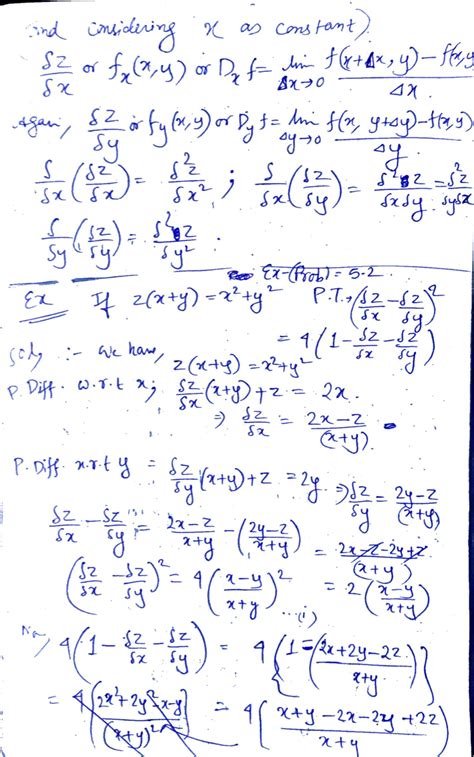 and considering x as constant)
δz/δx or fₓ(x,y) or Dₓf = lim Δx→0 f(x+Δx, y) − f(x,y / Δx
Again, δz/δy or fy(x,y) or Dyf = lim Δy→0 f(x, y+Δy) − f(x,y) / Δy
δ/δx (δz/δx) = δ²z/δx² ; δ/δx (δz/δy) = δ²z/δxδy = δ²z/δyδx
δ/δy (δz/δy) = δ²z/δy²
Ex-(Prob) = 5.2
Ex If z(x+y) = x²+y² P.T., (δz/δx − δz/δy)²
= 4(1 − δz/δx − δz/δy)
Soln :- we have, z(x+y) = x²+y²
P. Diff. w.r.t x; δz/δx (x+y) + z = 2x
⇒ δz/δx = 2x−z/(x+y)
P. Diff. w.r.t y = δz/δy (x+y) + z = 2y ⇒ δz/δy = 2y−z/(x+y)
δz/δx − δz/δy = 2x−z/x+y − (2y−z/x+y) = 2x−z−2y+z/(x+y)
(δz/δx − δz/δy)² = 4(x−y/x+y)² = 2(x−y/x+y)
...(i)
Now, 4(1 − δz/δx − δz/δy) = 4{1 − (2x+2y−2z/x+y)}
= 4(2x²+2y²−x−y/(x+y)²) = 4(x+y−2x−2y+2z/x+y)